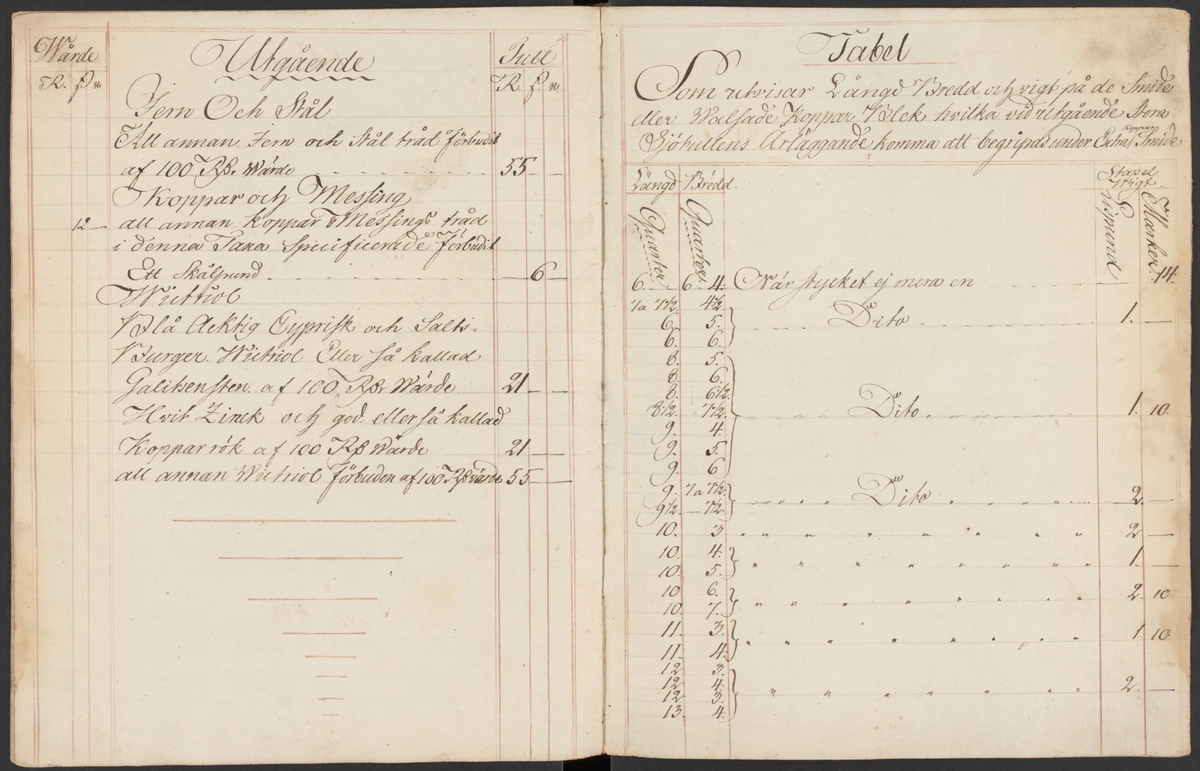 Wärde Utgående Tull
R. ß rs R. ß rs
Jern Och Stål
All annan Jern och Stål tråd förbudit
af 100 Rß. Wärde 55 —
Koppar och Messing
12 — all annan koppar & Messings tråd
i denna Taxa Specificerade Förbudit
Ett Skålpund — 6 —
Wictriol
Blå Acktig Cyprisk och Salts-
Burger Wictriol Eller så kallad
Galitsensten af 100 Rß Wärde 21 —
Hvit Zinck och god eller så kallad
Kopparrök af 100 Rß Wärde 21 —
all annan Wictriol förbuden af 100 Rß wärde 55 —
Tabel
Som utvisar Längd Bredd och vigt på de Smide
eller Walsade Koppar Blek hvilka vid Utgående Stora
Koppar
Sjötullens Ärläggande komma att begripas under Extra Smide
Längd Bredd Stapel
Wigt
Quarter Quarter Lispund Marker
6. 6. 4. När stycket ej mera en 14.
7 a 7½ 4½
6. 5. Dito 1. —
6. 6.
8. 5.
8. 6.
8. 6½
8½. 7½. Dito 1. 10.
9. 4.
9. 5.
9. 6
9. 7 a 7½ Dito 2. —
9½ — 7½.
10. 3 " " " " " " " 2 —
10. 4.
10. 5. " " " " " " " 1. —
10 6.
10. 7. " " " " " " " 2. 10
11. 3.
11. 4. " " " " " " " 1 10
12 3.
12 4. " " " " " " " 2. —
12 3
13. 4.